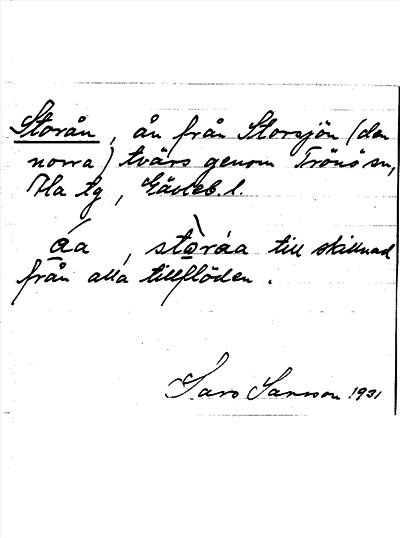 Storån, ån från Storsjön (den
norra) tvärs genom Trönö sn,
Ha tg, Gävleb. l.
áa, stòráa till skillnad
från alla tillflöden.
Lars Larsson 1931